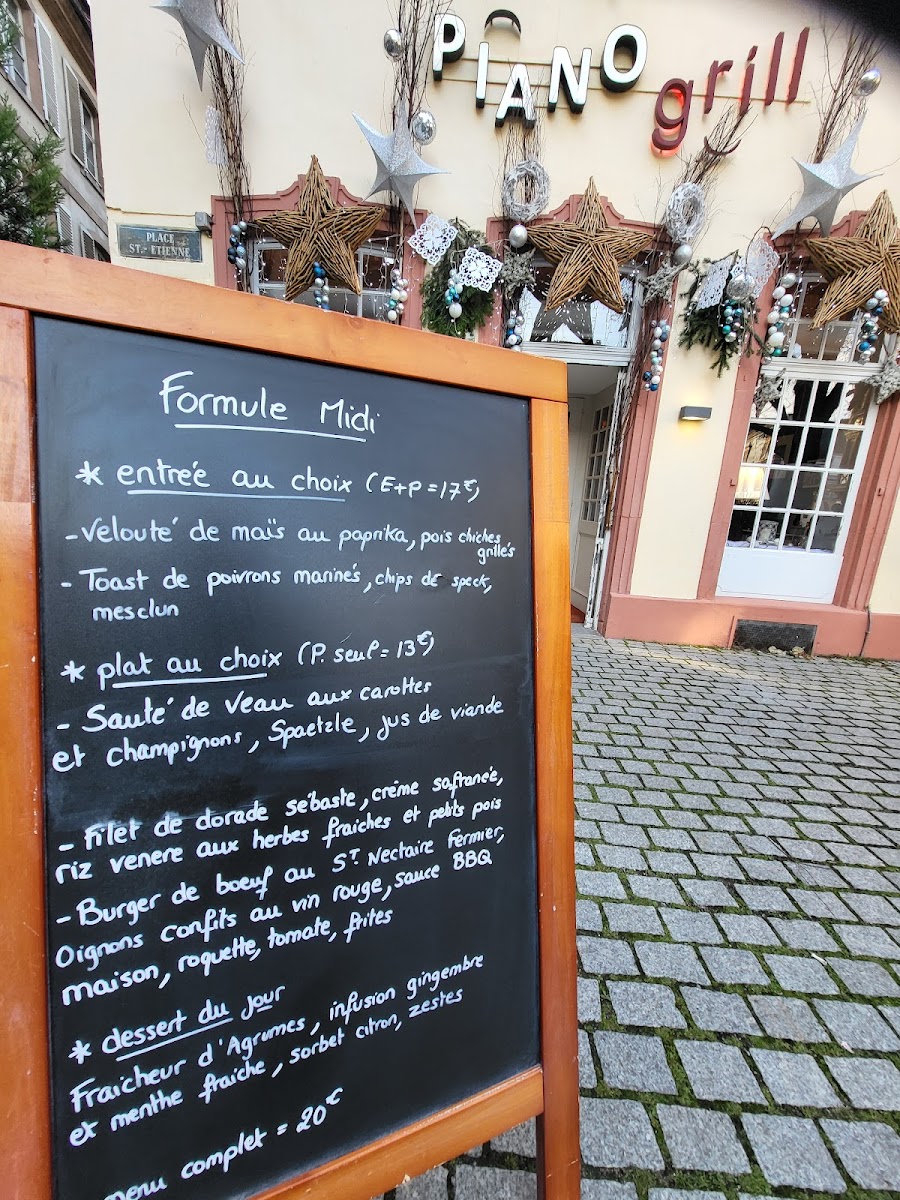 PIANO grill
PLACE
ST.-ETIENNE
Formule Midi
* entrée au choix (E+P=17€)
- Velouté de maïs au paprika, pois chiches
grillés
- Toast de poivrons marinés, chips de speck,
mesclun
* plat au choix (P. seul = 13€)
- Sauté de veau aux carottes
et champignons, Spaetzle, jus de viande
- Filet de dorade sébaste, crème safranée,
riz venere aux herbes fraiches et petits pois
- Burger de boeuf au ST Nectaire Fermier,
Oignons confits au vin rouge, sauce BBQ
maison, roquette, tomate, frites
* dessert du jour
Fraicheur d'Agrumes, infusion gingembre
et menthe fraiche, sorbet citron, zestes
menu complet = 20€